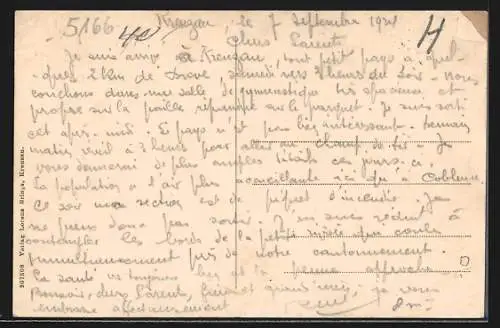 5/166
Kreuzau le 7 septembre 1924
H
Chers Parents
Je suis arrivé à Kreuzau, tout petit pays à quel-
ques 2 km de Drove, samedi vers 3 heures du soir. Nous
couchons dans une salle de gymnastique très spacieuse et
propre sur la paille répandue sur le parquet. Je suis sorti
cet après-midi. Le pays n'est pas bien intéressant. Demain
matin réveil à 3 heures pour aller au champ de tir. Je
vous donnerai de plus amples détails ces jours-ci.
La population a l'air plus accueillante ici qu'à Coblence.
Ce soir ma section est de piquet d'incendie. Je
ne peux donc pas sortir. J'en suis réduit à
contempler les bords de la petite rivière qui coule
près de notre cantonnement.
La santé va toujours bien et la
Bonsoir, chers Parents, je vous
embrasse affectueusement
207508 Verlag Lorenz Brings, Kreuzau.